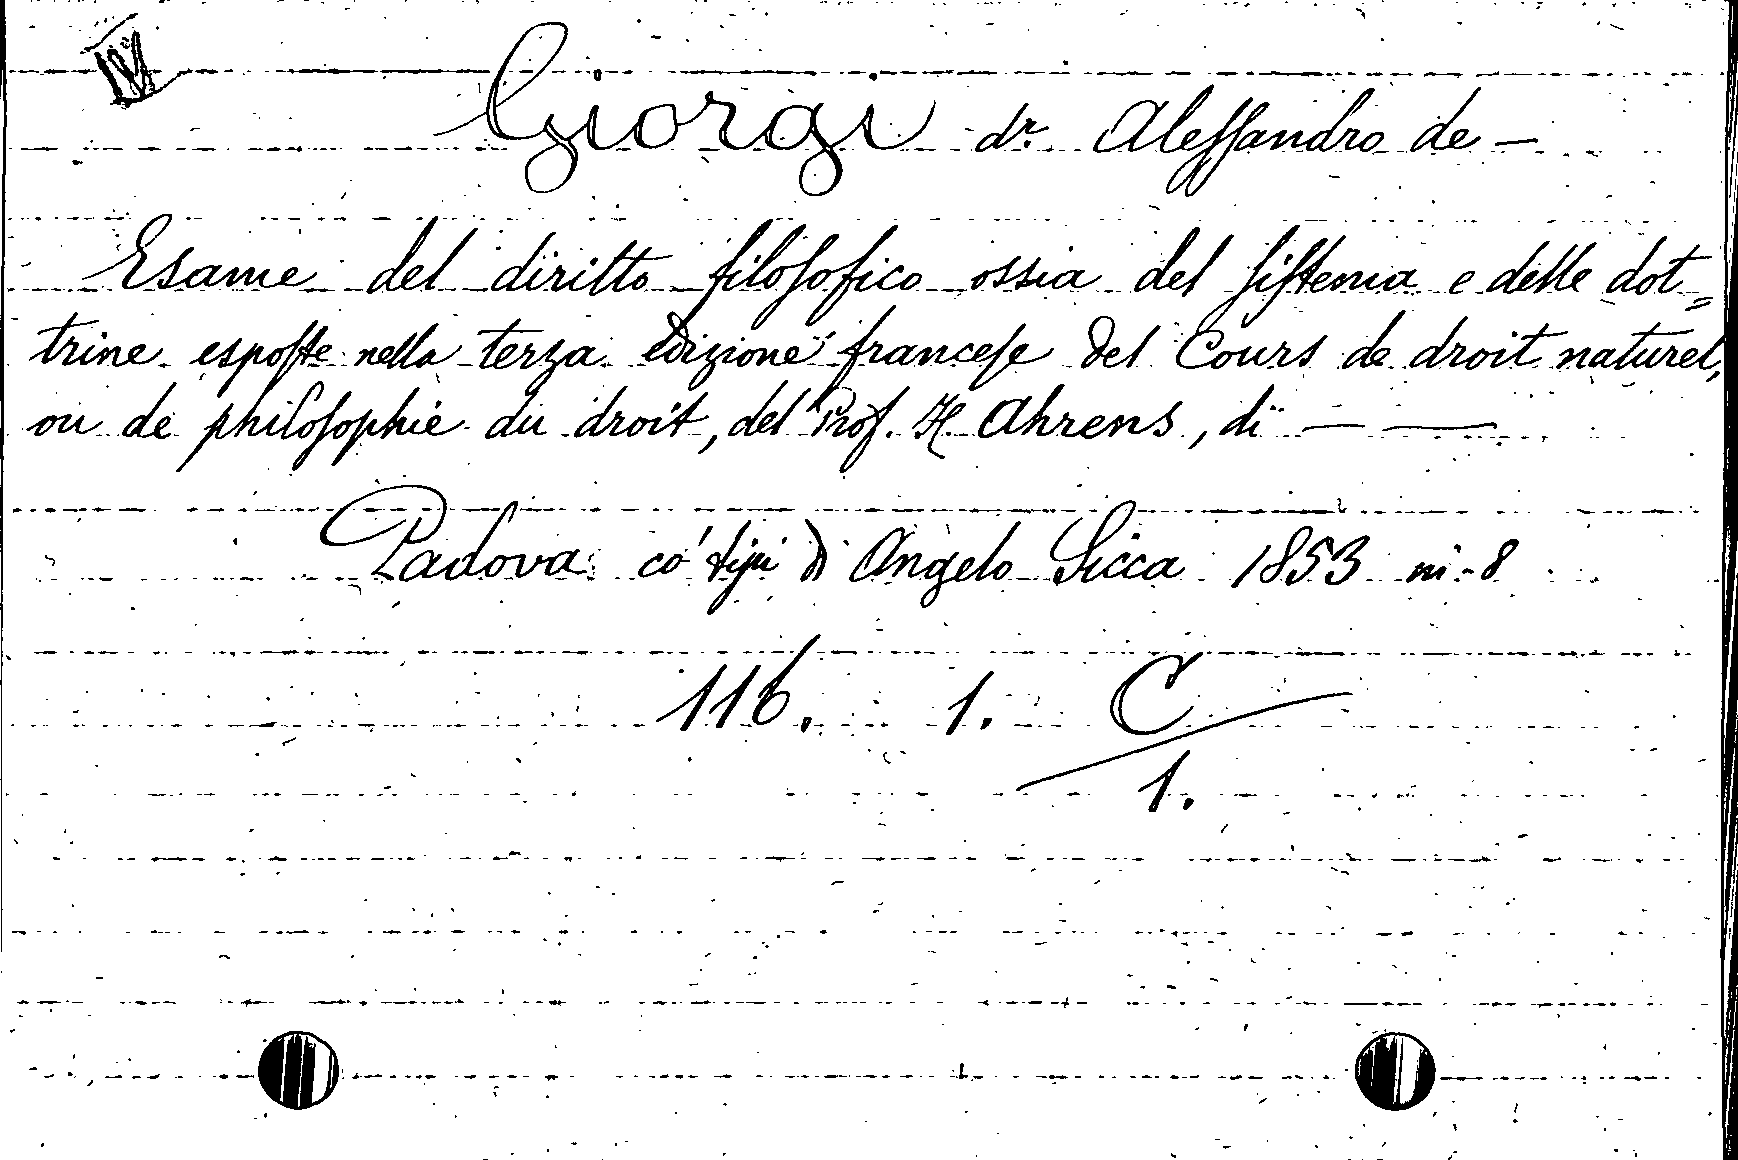 Giorgi dr. Aleſsandro de —
Esame del diritto filoſofico ossia del ſiſtema e delle dot=
trine espoſte nella terza edizione franceſe del Cours de droit naturel,
ou de philoſophie du droit, del Prof. H. Ahrens, di — —
Padova co' tipi di Angelo Sicca 1853 in-8
116. 1. C
1.